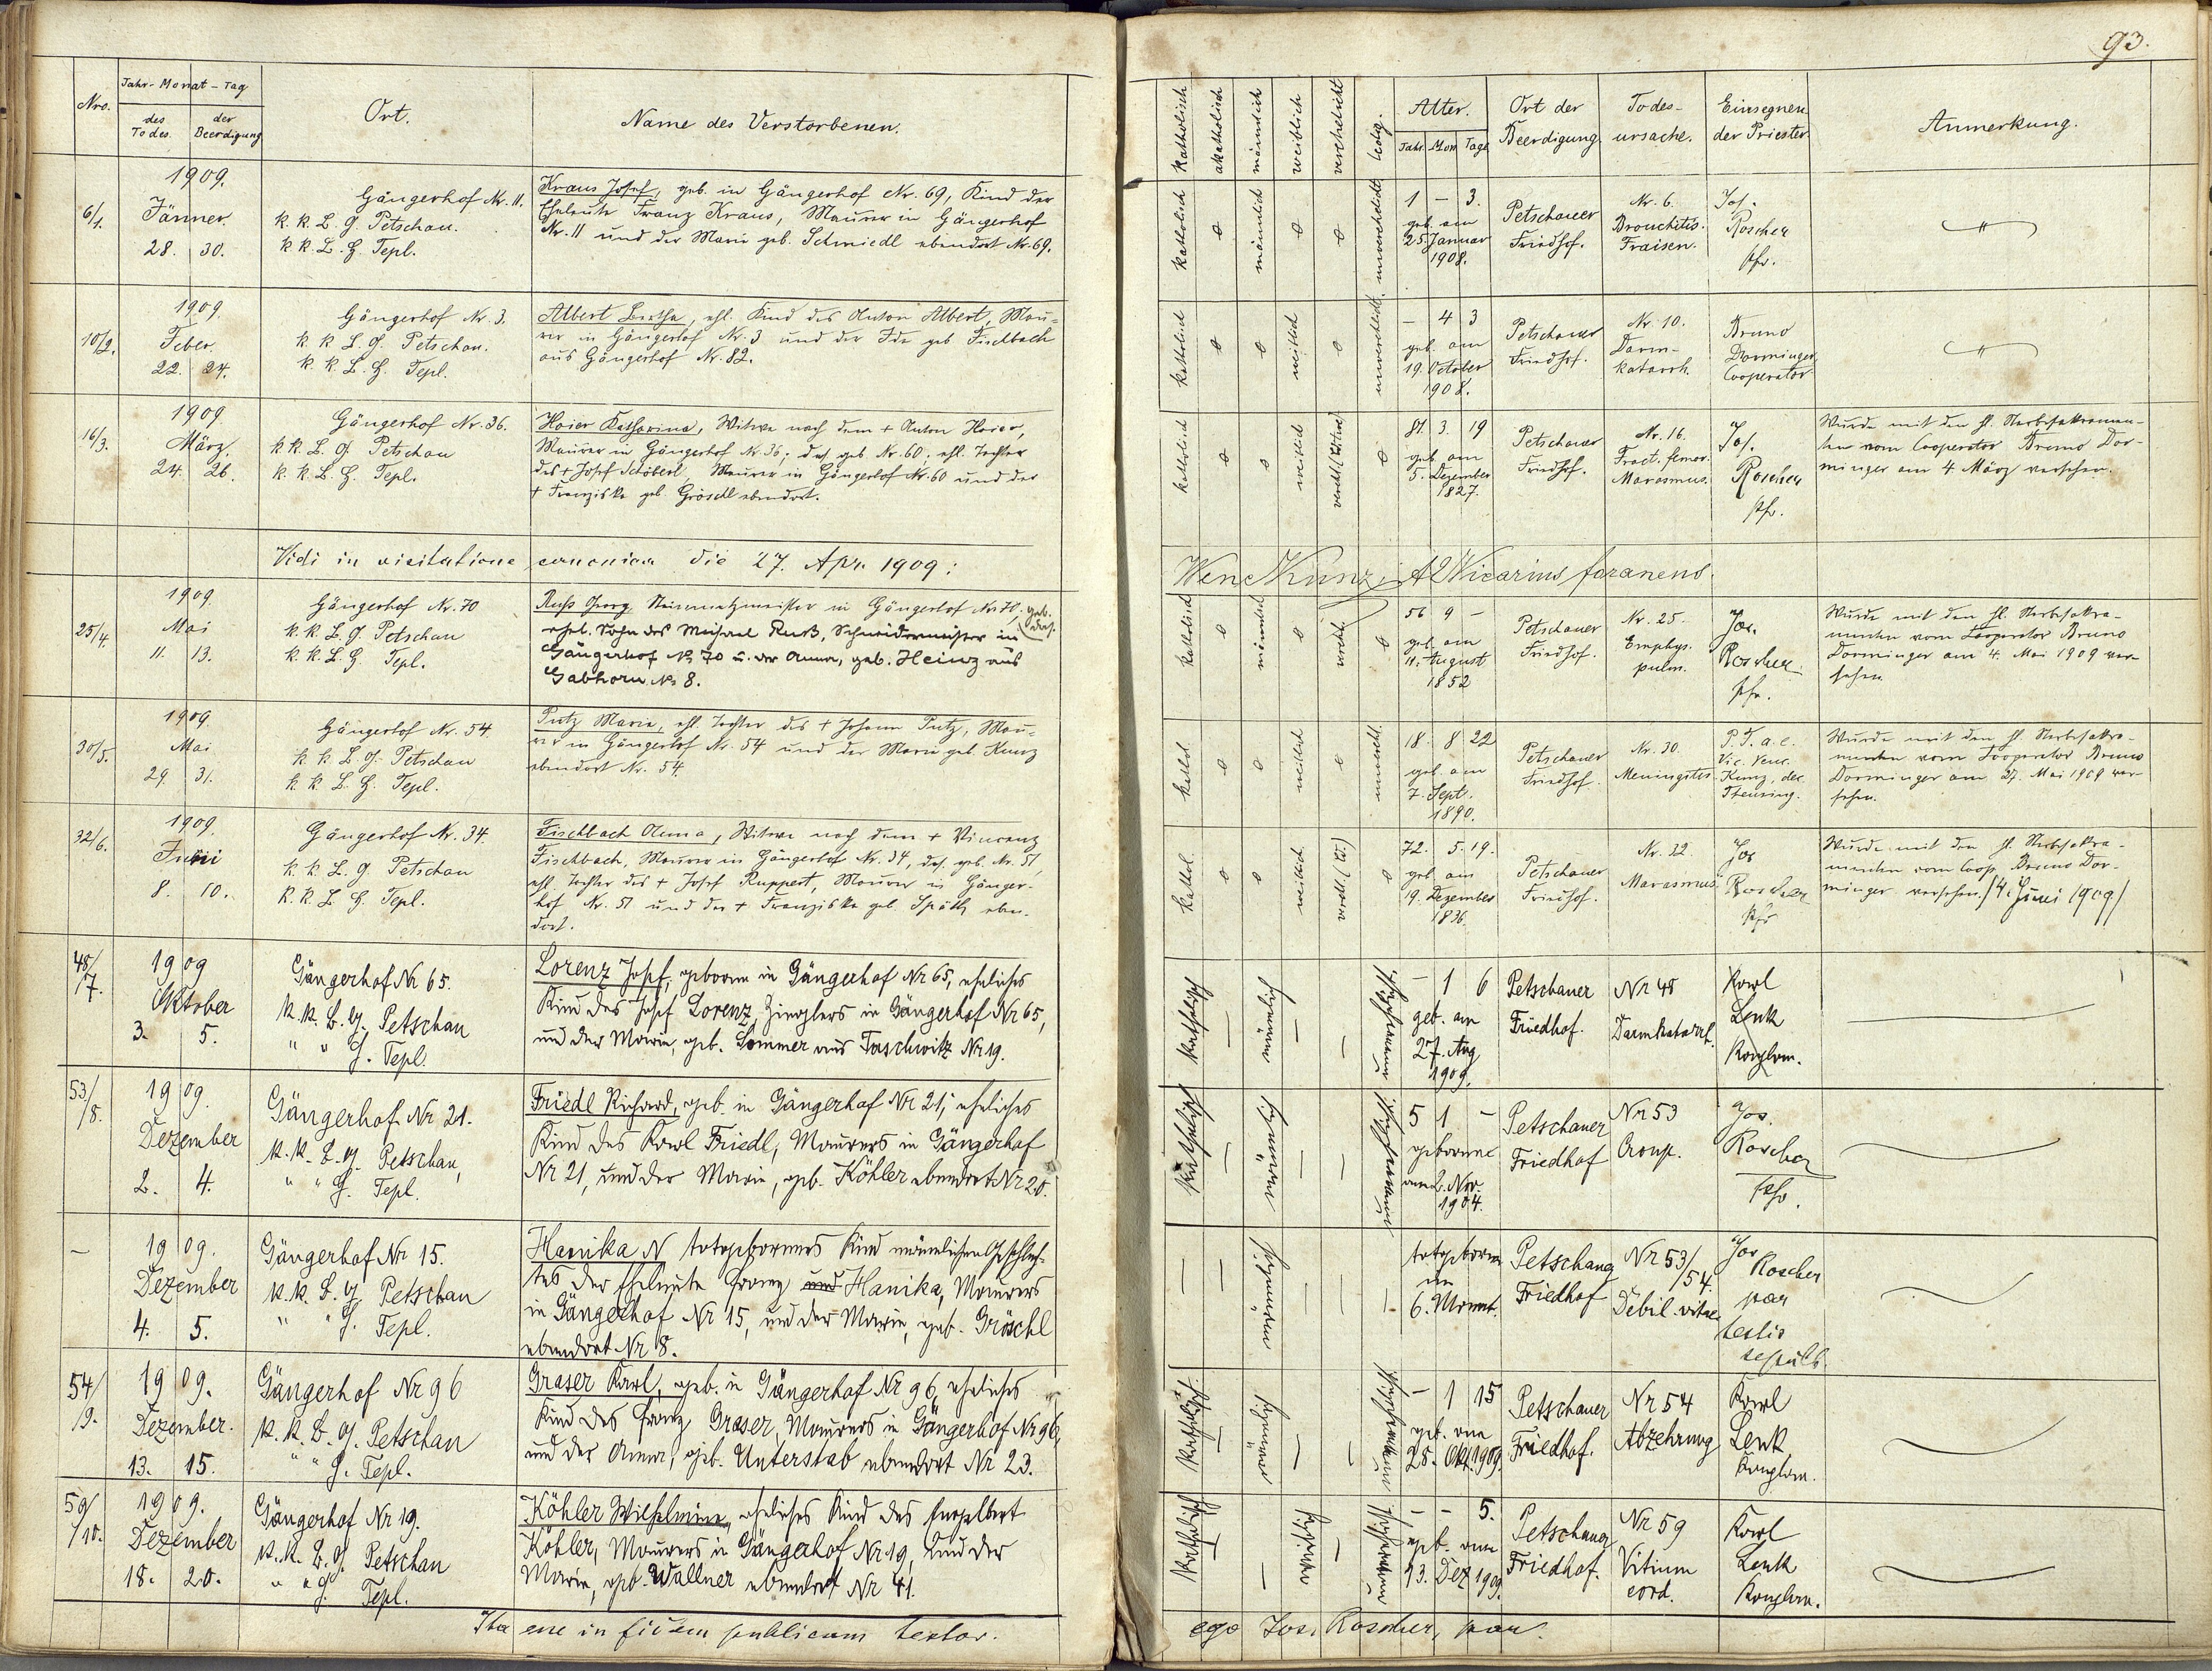 93.
Nro.
Jahr - Monat - Tag
des Todes
der Beerdigung
Ort.
Name des Verstorbenen.
Katholisch
akatholisch
männlich
weiblich
verehelicht
ledig.
Alter.
Jahr. Mon. Tage
Ort der Beerdigung
Todesursache.
Einsegnen der Priester
Anmerkung.
6/1.
1909.
Jänner.
28. 30.
Gängerhof Nr. 11.
k. k. L. G. Petschau.
k. k. L. H. Tepl.
Kraus Josef, geb. in Gängerhof Nr. 69, Kind der
Eheleute Franz Kraus, Maurer in Gängerhof
Nr. 11 und der Marie geb. Schmiedl ebendort Nr. 69.
katholisch
o
männlich
o
o
unverehelicht
1 - 3.
geb. am
25. Januar
1908.
Petschauer
Friedhof.
Nr. 6.
Bronchitis.
Fraisen.
Jos.
Roscher
Pfr.
"
10/2.
1909
Feber.
22. 24.
Gängerhof Nr. 3.
k. k. L. G. Petschau.
k. k. L. H. Tepl.
Albert Bertha, ehl. Kind des Anton Albert, Mau-
rer in Gängerhof Nr. 3 und der Ida geb Fischbach
aus Gängerhof Nr. 82.
katholisch
o
o
weiblich
o
unverehelicht.
- 4 3
geb. am
19. October
1908.
Petschauer
Friedhof.
Nr. 10.
Darm-
katarrh.
Bruno
Dorminger
Cooperator
"
16/3.
1909
März.
24. 26.
Gängerhof Nr. 36.
k k L. G. Petschau
k. k. L. H. Tepl.
Hoier Katharina, Witwe nach dem + Anton Hoier,
Maurer in Gängerhof Nr. 36; das. geb Nr. 60; ehl. Tochter
des + Josef Schöberl, Maurer in Gängerhof Nr. 60 und der
+ Franziska geb Gröschl ebendort.
katholisch
o
o
weiblich
verehl. (Witwe)
o
81. 3. 19
geb. am
5. Dezember
1827.
Petschauer
Friedhof.
Nr. 16.
Fract. femor.
Marasmus.
Jos.
Roscher
Pfr.
Wurde mit den hl. Sterbesakramen-
ten vom Cooperator Bruno Dor-
minger am 4 März versehen.
Vidi in visitatione canonica die 27. Apr. 1909:
Wenc Kunz, Vicarius foraneus.
25/4.
1909
Mai
11. 13.
Gängerhof Nr. 70
k. k. L. G. Petschau
k. k. L. H. Tepl.
Ruß Georg, Steinmetzmeister in Gängerhof Nr. 70. geb. das.
ehel. Sohn des Michael Ruß, Schneidermeister in
Gängerhof Nr. 70 u. der Anna, geb. Heinz aus
Gabhorn. Nr. 8.
katholisch
o
männlich
o
verehl.
o
56 9 -
geb. am
11. August
1852
Petschauer
Friedhof.
Nr. 25.
Emphys.
pulm.
Jos.
Roscher
Pfr.
Wurde mit den hl. Sterbesakra-
menten vom Cooperator Bruno
Dorminger am 4. Mai 1909 ver-
sehen
30/5.
1909.
Mai
29. 31.
Gängerhof Nr. 54.
k k L. G. Petschau
k k L. H. Tepl.
Putz Marie, ehl. Tochter des + Johann Putz, Mau-
rer in Gängerhof Nr. 54 und der Marie geb. Kunz
ebendort Nr. 54.
kathol
o
o
weiblich
o
unverehl.
18. 8 22
geb. am
7. Sept.
1890.
Petschauer
Friedhof.
Nr. 30.
Meningitis.
P. T. a. c.
Vic. Venc.
Kunz, dec.
Theusing.
Wurde mit den hl. Sterbesakra-
menten vom Cooperator Bruno
Dorminger am 27. Mai 1909 ver-
sehen.
32/6.
1909
Juni
8. 10.
Gängerhof Nr. 34.
k. k. L. G. Petschau
k. k. L. H. Tepl.
Fischbach Anna, Witwe nach dem + Vincenz
Fischbach, Maurer in Gängerhof Nr. 34, das. geb. Nr. 51,
ehl. Tochter des + Josef Ruppert, Maurer in Gänger-
hof Nr. 51 und der + Franziska geb. Späth, eben-
dort.
kathol.
o
o
weiblich
verehl. (W.)
o
72. 5. 19.
geb. am
19. Dezember
1836.
Petschauer
Friedhof.
Nr. 32
Marasmus.
Jos
Roscher
Pfr
Wurde mit den hl. Sterbesakra-
menten vom Coop. Bruno Dor-
minger versehen. /4. Juni 1909/
48/7.
1909
Oktober
3. 5.
Gängerhof Nr 65.
k. k. B. G. Petschau
" " G. Tepl.
Lorenz Josef, geboren in Gängerhof Nr 65, eheliches
Kind des Josef Lorenz, Zieglers in Gängerhof Nr 65,
und der Marie, geb. Sommer aus Taschwitz Nr 19.
katholisch
—
männlich
—
—
unverehelicht
- 1 6
geb. am
27. Aug
1909.
Petschauer
Friedhof.
Nr 48
Darmkatarrh.
Karl
Lenk
Kaplan.
53/8.
1909.
Dezember
2. 4.
Gängerhof Nr 21.
k. k. B. G. Petschau,
" " G. Tepl.
Friedl Richard, geb. in Gängerhof Nr 21, eheliches
Kind des Karl Friedl, Maurers in Gängerhof
Nr 21, und der Marie, geb. Köhler ebendort Nr 20.
katholisch
—
männlich
—
—
unverehelicht
5 1 -
geboren
am 2. Nov.
1904.
Petschauer
Friedhof
Nr 53
Croup.
Jos.
Roscher
Pfr.
—
1909.
Dezember
4. 5.
Gängerhof Nr 15.
k. k. B. G. Petschau
" " G. Tepl.
Hanika N totgeborenes Kind männlichen Geschlech-
tes der Eheleute Franz und Hanika, Maurers
in Gängerhof Nr 15, und der Marie, geb. Gröschl
ebendort Nr 8.
—
—
männlich
—
—
—
totgeboren
im
6. Monat.
Petschaug
Friedhof
Nr 53/54.
Debil. vitae
Jos
Roscher
par
testis
sepult.
54/9.
1909.
Dezember.
13. 15.
Gängerhof Nr 96
k. k. B. G. Petschau
" " G. Tepl.
Graser Karl, geb. in Gängerhof Nr 96, eheliches
Kind des Franz Graser, Maurers in Gängerhof Nr 96,
und der Anna, geb. Unterstab ebendort Nr 23.
katholisch
—
männlich
—
—
unverehelicht
- 1 15
geb. am
28. Okt. 1909.
Petschauer
Friedhof.
Nr 54
Abzehrung
Karl
Lenk
Kaplan.
59/10.
1909.
Dezember
18. 20.
Gängerhof Nr 19.
k. k. B. G. Petschau
" " G. Tepl.
Köhler Wilhelmine, eheliches Kind des Engelbert
Köhler, Maurers in Gängerhof Nr 19, und der
Marie, geb. Wallner ebendort Nr 41.
katholisch
—
—
weiblich
—
unverehelicht
- - 5.
geb. am
13. Dez 1909.
Petschauer
Friedhof.
Nr 59
Vitium
cord.
Karl
Lenk
Kaplan.
Ita esse in fidem publicam testor. ego Jos. Roscher, par.